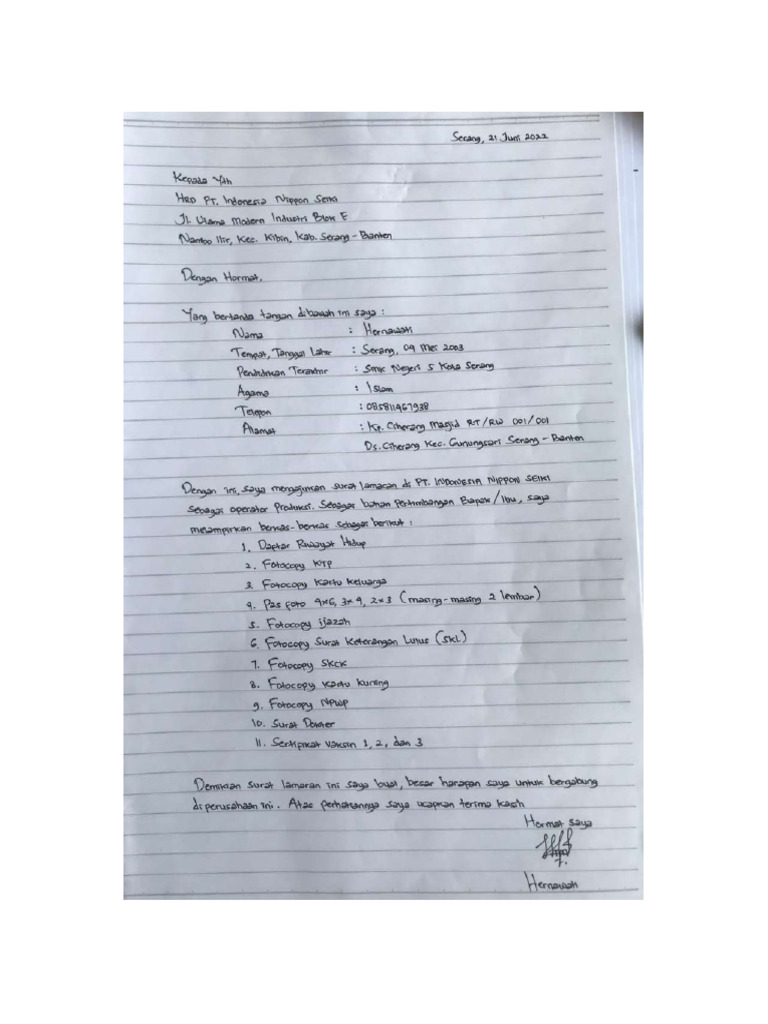 Serang, 21 Juni 2022
Kepada Yth
HRD PT. Indonesia Nippon Seiki
Jl. Utama Modern Industri Blok E
Nambo Ilir, Kec. Kibin, Kab. Serang - Banten
Dengan Hormat,
Yang bertanda tangan dibawah ini saya :
Nama : Hernawati
Tempat, Tanggal Lahir : Serang, 09 Mei 2003
Pendidikan Terakhir : SMK Negeri 5 Kota Serang
Agama : Islam
Telepon : 085811467938
Alamat : Kp. Ciherang Masjid RT/RW 001/001
Ds. Ciherang Kec. Gunungsari Serang - Banten
Dengan ini, saya mengajukan surat lamaran di PT. INDONESIA NIPPON SEIKI
sebagai operator Produksi. Sebagai bahan Pertimbangan Bapak / Ibu, saya
melampirkan berkas-berkas sebagai berikut :
1. Daftar Riwayat Hidup
2. Fotocopy KTP
3. Fotocopy Kartu Keluarga
4. Pas foto 4×6, 3×4, 2×3 (masing-masing 2 lembar)
5. Fotocopy ijazah
6. Fotocopy Surat Keterangan Lulus (SKL)
7. Fotocopy SKCK
8. Fotocopy Kartu Kuning
9. Fotocopy NPWP
10. Surat Dokter
11. Sertifikat Vaksin 1, 2, dan 3
Demikian surat lamaran ini saya buat, besar harapan saya untuk bergabung
diperusahaan ini. Atas perhatiannya saya ucapkan terima kasih
Hormat saya
Hernawati